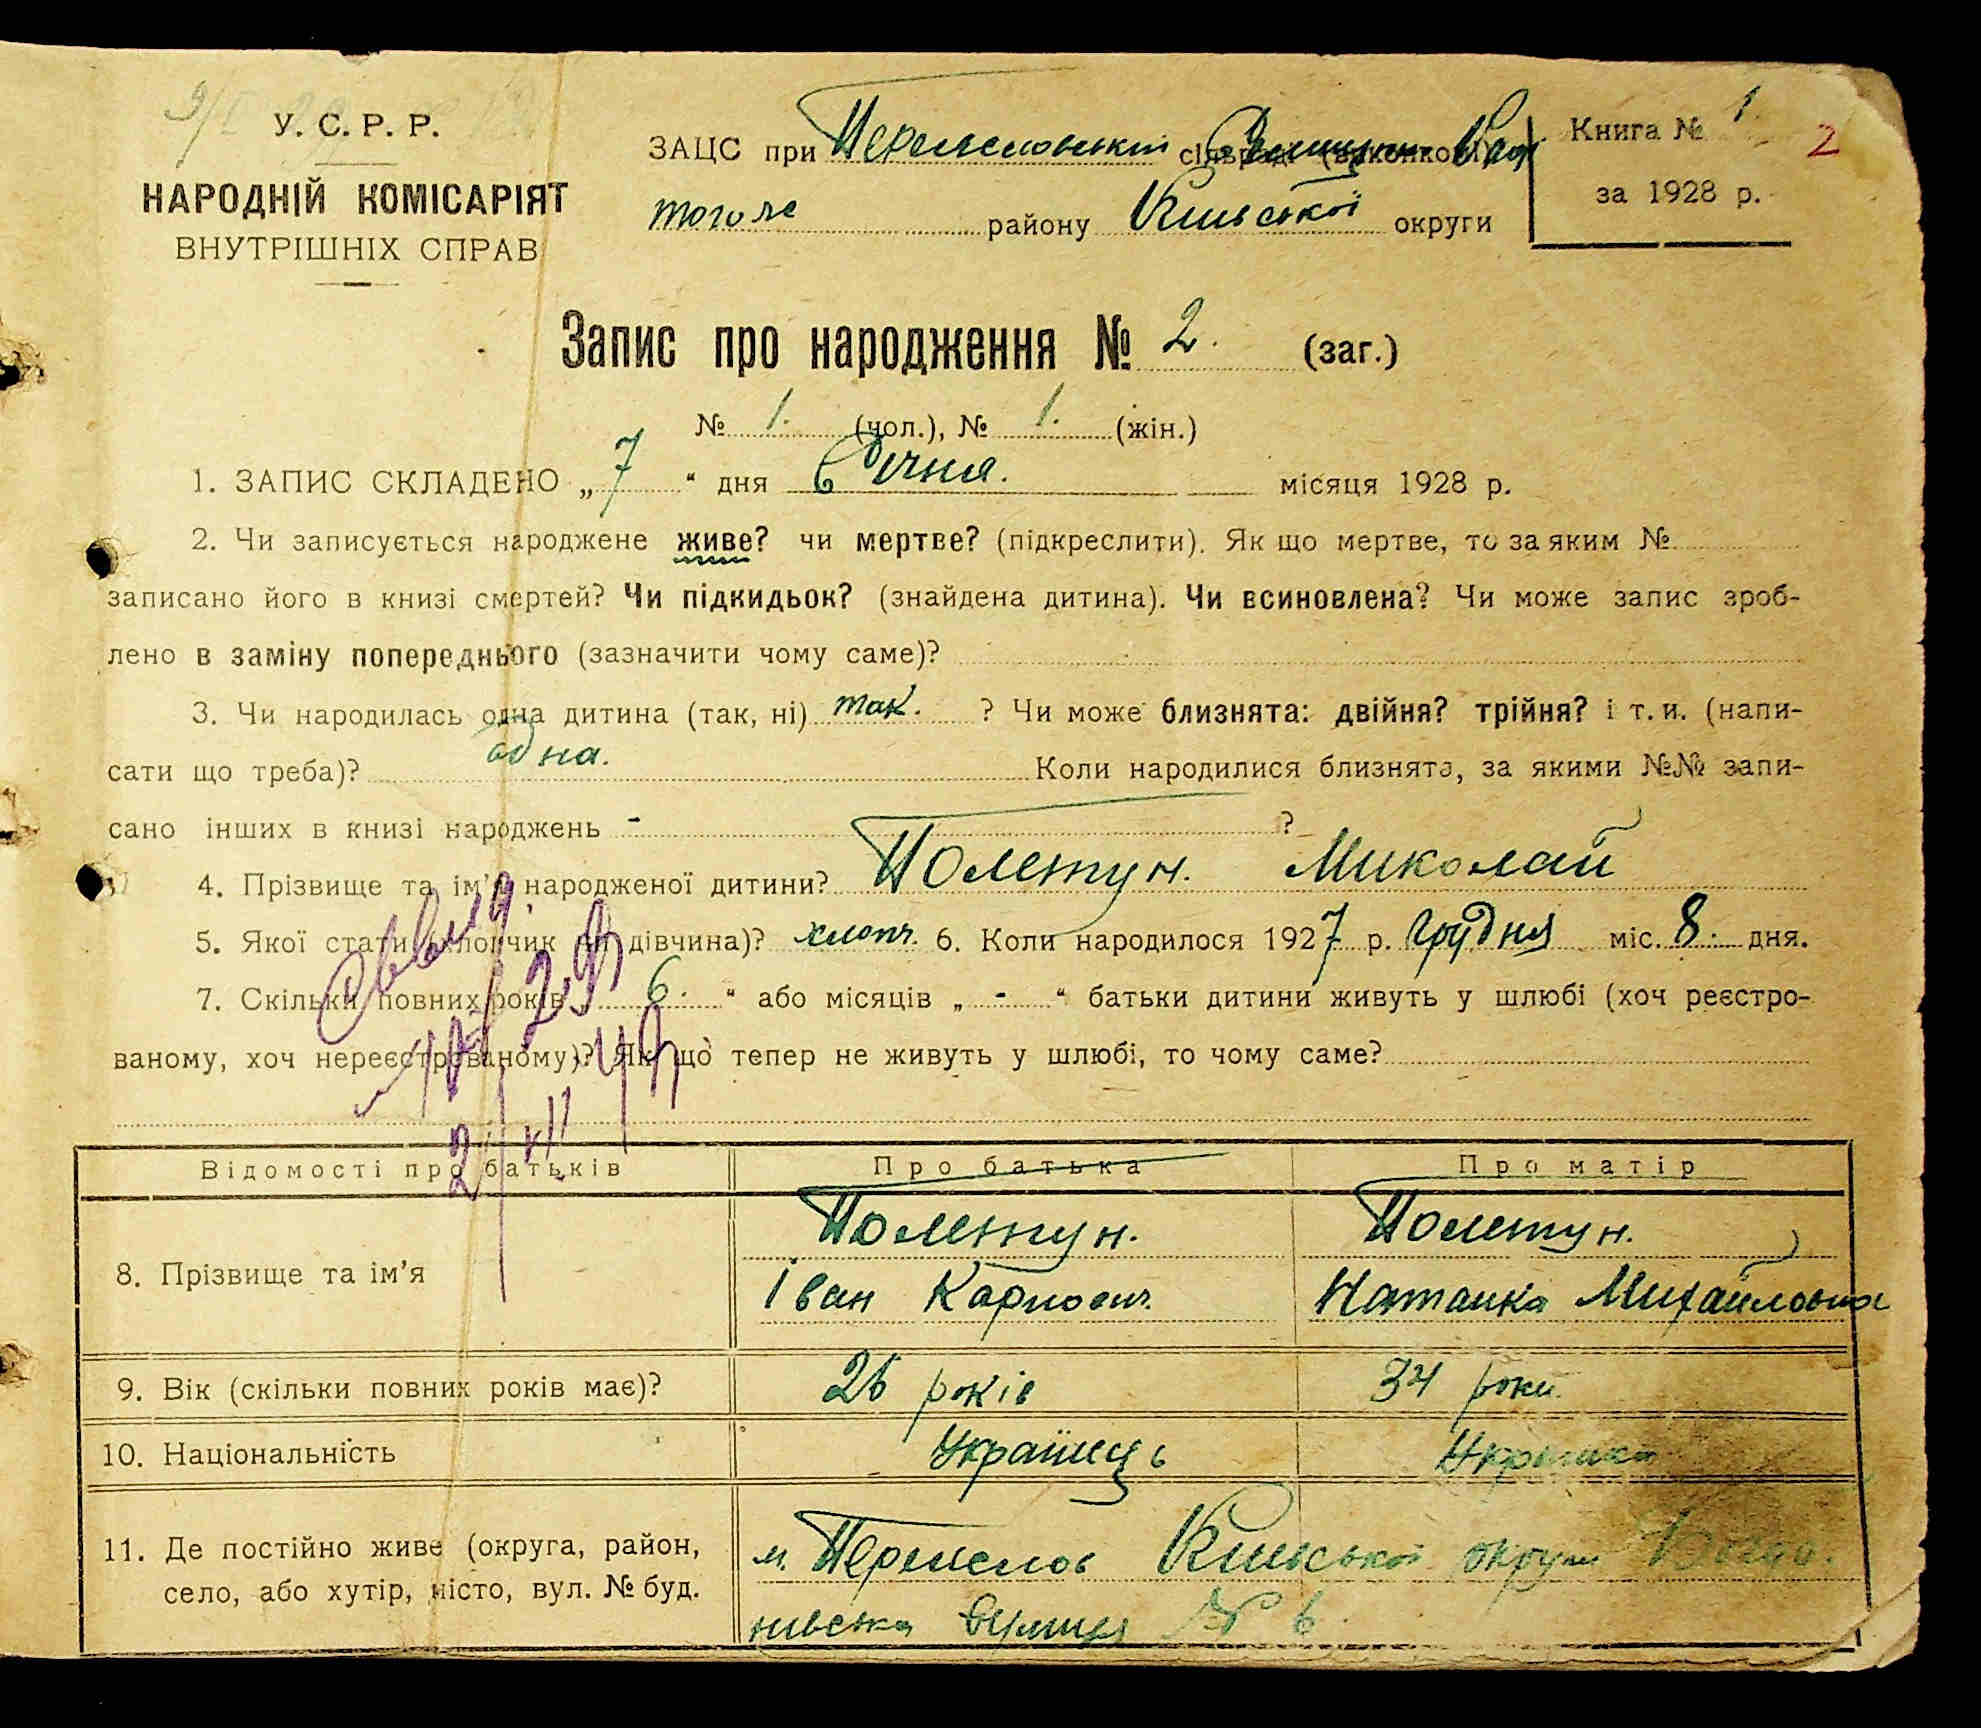 У. С. Р. Р.
НАРОДНІЙ КОМІСАРІЯТ
ВНУТРІШНІХ СПРАВ
ЗАЦС при
того ж району Київської округи
Книга № 1
за 1928 р.
2
Запис про народження № 2. (заг.)
№ 1. (чол.), № 1. (жін.)
1. ЗАПИС СКЛАДЕНО „ 7 “ дня Січня. місяця 1928 р.
2. Чи записується народжене живе? чи мертве? (підкреслити). Як що мертве, то за яким №
записано його в книзі смертей? Чи підкидьок? (знайдена дитина). Чи всиновлена? Чи може запис зроб-
лено в заміну попереднього (зазначити чому саме)?
3. Чи народилась одна дитина (так, ні) так. ? Чи може близнята: двійня? трійня? і т. и. (напи-
сати що треба)? одна. Коли народилися близнята, за якими №№ запи-
сано інших в книзі народжень - ?
4. Прізвище та ім'я народженої дитини? Полетун. Миколай
5. Якої стати (хлопчик чи дівчина)? хлопч. 6. Коли народилося 1927 р. Грудня міс. 8. дня.
7. Скільки повних років „ 6. “ або місяців „ - “ батьки дитини живуть у шлюбі (хоч реєстро-
ваному, хоч нереєстрованому)? Як що тепер не живуть у шлюбі, то чому саме?
Відомості про батьків Про батька Про матір
8. Прізвище та ім'я
Полетун. Полетун.
Іван Карпович. Наталка Михайловна
9. Вік (скільки повних років має)? 26 років 34 роки
10. Національність Українець Українка
11. Де постійно живе (округа, район,
село, або хутір, місто, вул. № буд.
м. Переяслов Київської округи
вулиця № 6